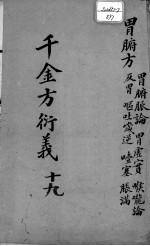 胃腑方
胃腑脈論 胃虛實 喉嚨論
反胃 嘔吐噦逆 噎塞 脹滿
千金方衍義 十九